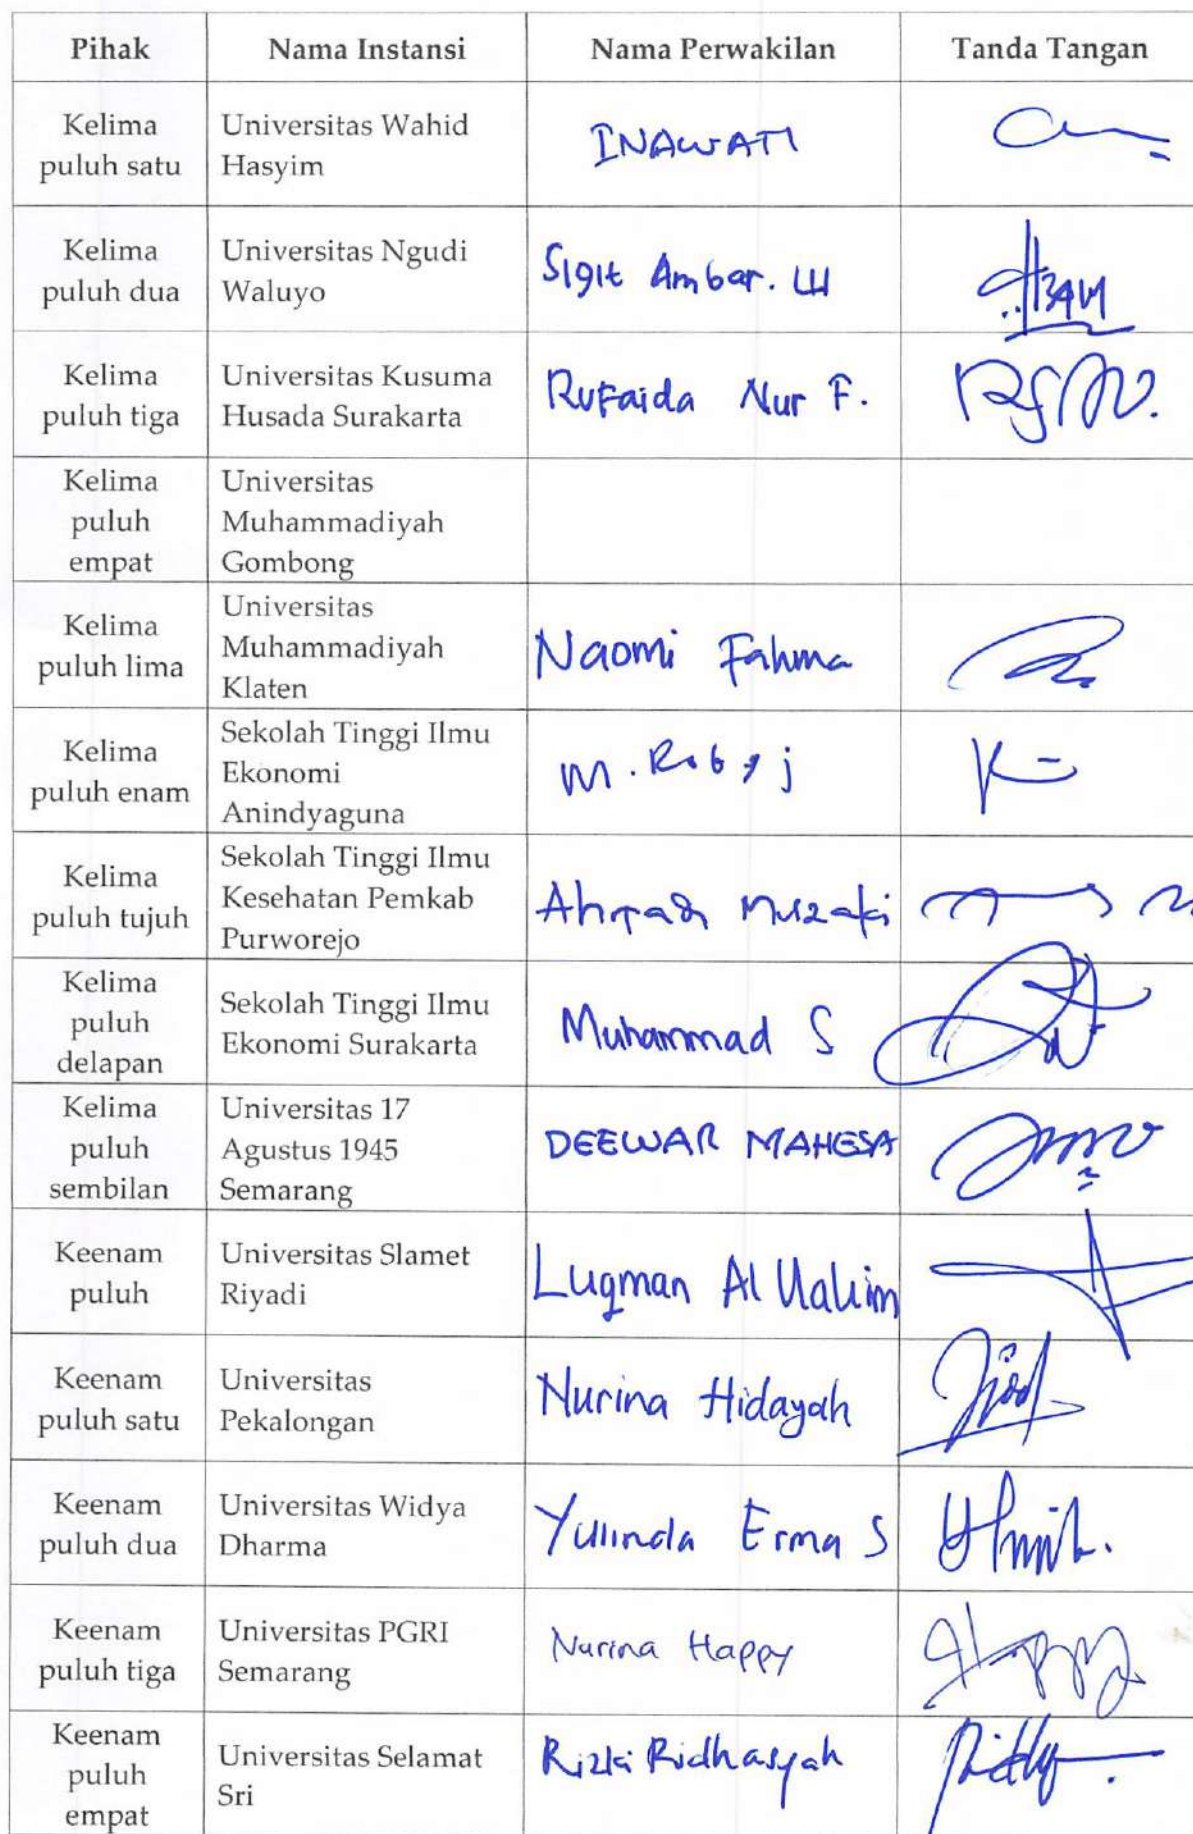 Pihak Nama Instansi Nama Perwakilan Tanda Tangan
Kelima
puluh satu
Universitas Wahid
Hasyim
INAWATI
Kelima
puluh dua
Universitas Ngudi
Waluyo
Sigit Ambar. W
Kelima
puluh tiga
Universitas Kusuma
Husada Surakarta
Rufaida Nur F.
Kelima
puluh
empat
Universitas
Muhammadiyah
Gombong
Kelima
puluh lima
Universitas
Muhammadiyah
Klaten
Naomi Fahma
Kelima
puluh enam
Sekolah Tinggi Ilmu
Ekonomi
Anindyaguna
M.
Kelima
puluh tujuh
Sekolah Tinggi Ilmu
Kesehatan Pemkab
Purworejo
Ahmad Muzaki
Kelima
puluh
delapan
Sekolah Tinggi Ilmu
Ekonomi Surakarta
Muhammad S
Kelima
puluh
sembilan
Universitas 17
Agustus 1945
Semarang
DEEWAR MAHESA
Keenam
puluh
Universitas Slamet
Riyadi
Luqman Al Hakim
Keenam
puluh satu
Universitas
Pekalongan
Nurina Hidayah
Keenam
puluh dua
Universitas Widya
Dharma
Yulinda Erma S
Keenam
puluh tiga
Universitas PGRI
Semarang
Nurina Happy
Happy
Keenam
puluh
empat
Universitas Selamat
Sri
Rizki Ridhasyah